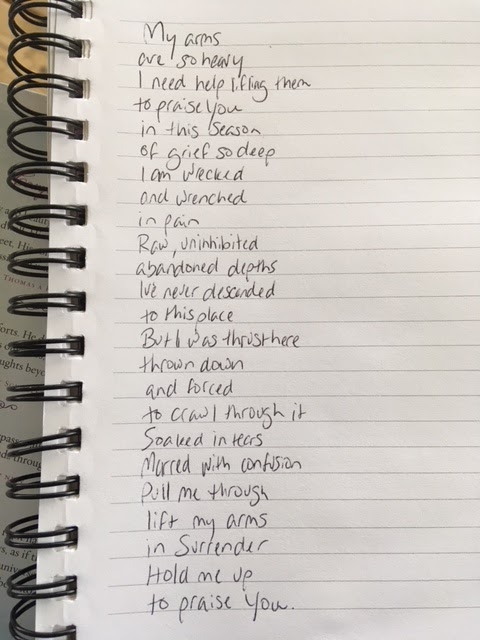 My arms
are so heavy
I need help lifting them
to praise you
in this season
of grief so deep
I am wrecked
and wrenched
in pain
Raw, uninhibited
abandoned depths
I've never descended
to this place
But I was thrust here
thrown down
and forced
to crawl through it
Soaked in tears
Marred with confusion
Pull me through
lift my arms
in Surrender
Hold me up
to praise You.
THOMAS A
forts. He d
ughts beyo